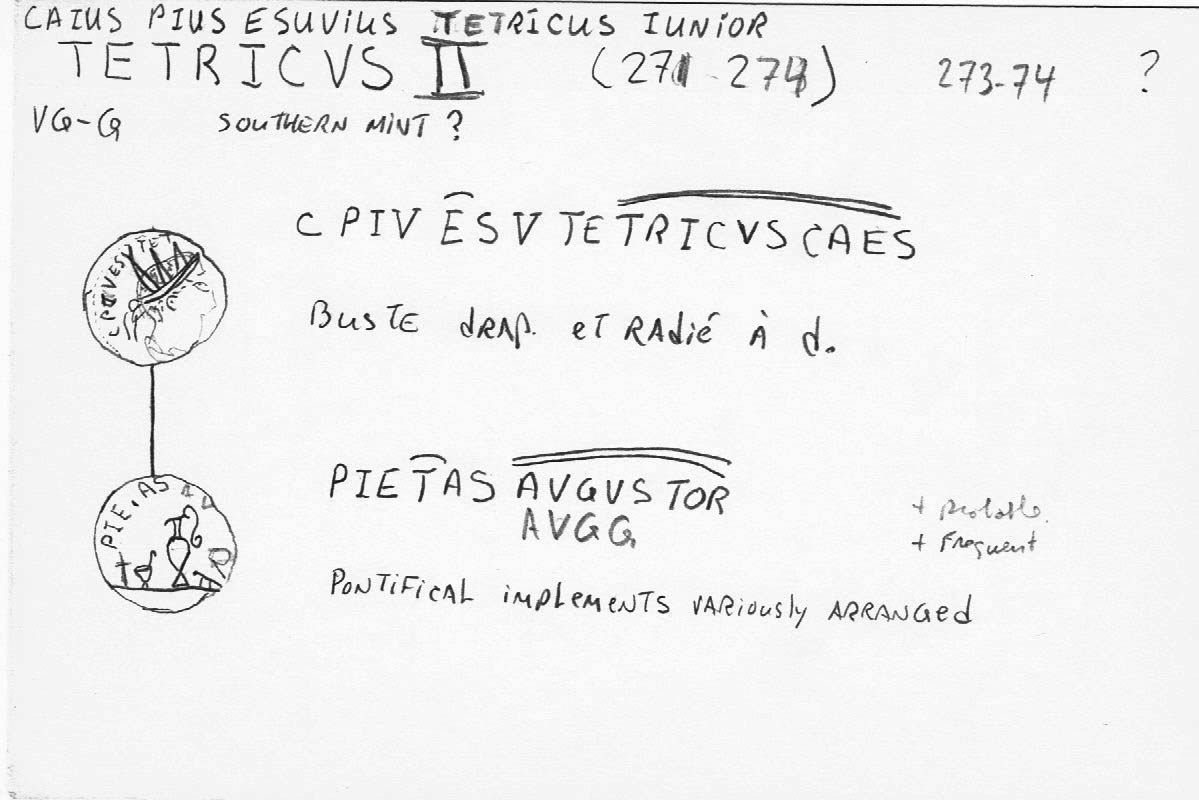 CAIUS PIUS ESUVIUS TETRICUS IUNIOR
TETRICVS II (271 - 274) 273-74 ?
VG-G SOUTHERN MINT ?
C PIV ESV TETRICVS CAES
CPIVESVTET
BUSTE dRAP. et RAdié À d.
PIETAS AVGVSTOR
AVGG
PIE.AS AU
+ Probable.
+ Frequent
PONTIFICAL implements variously ARRANGed